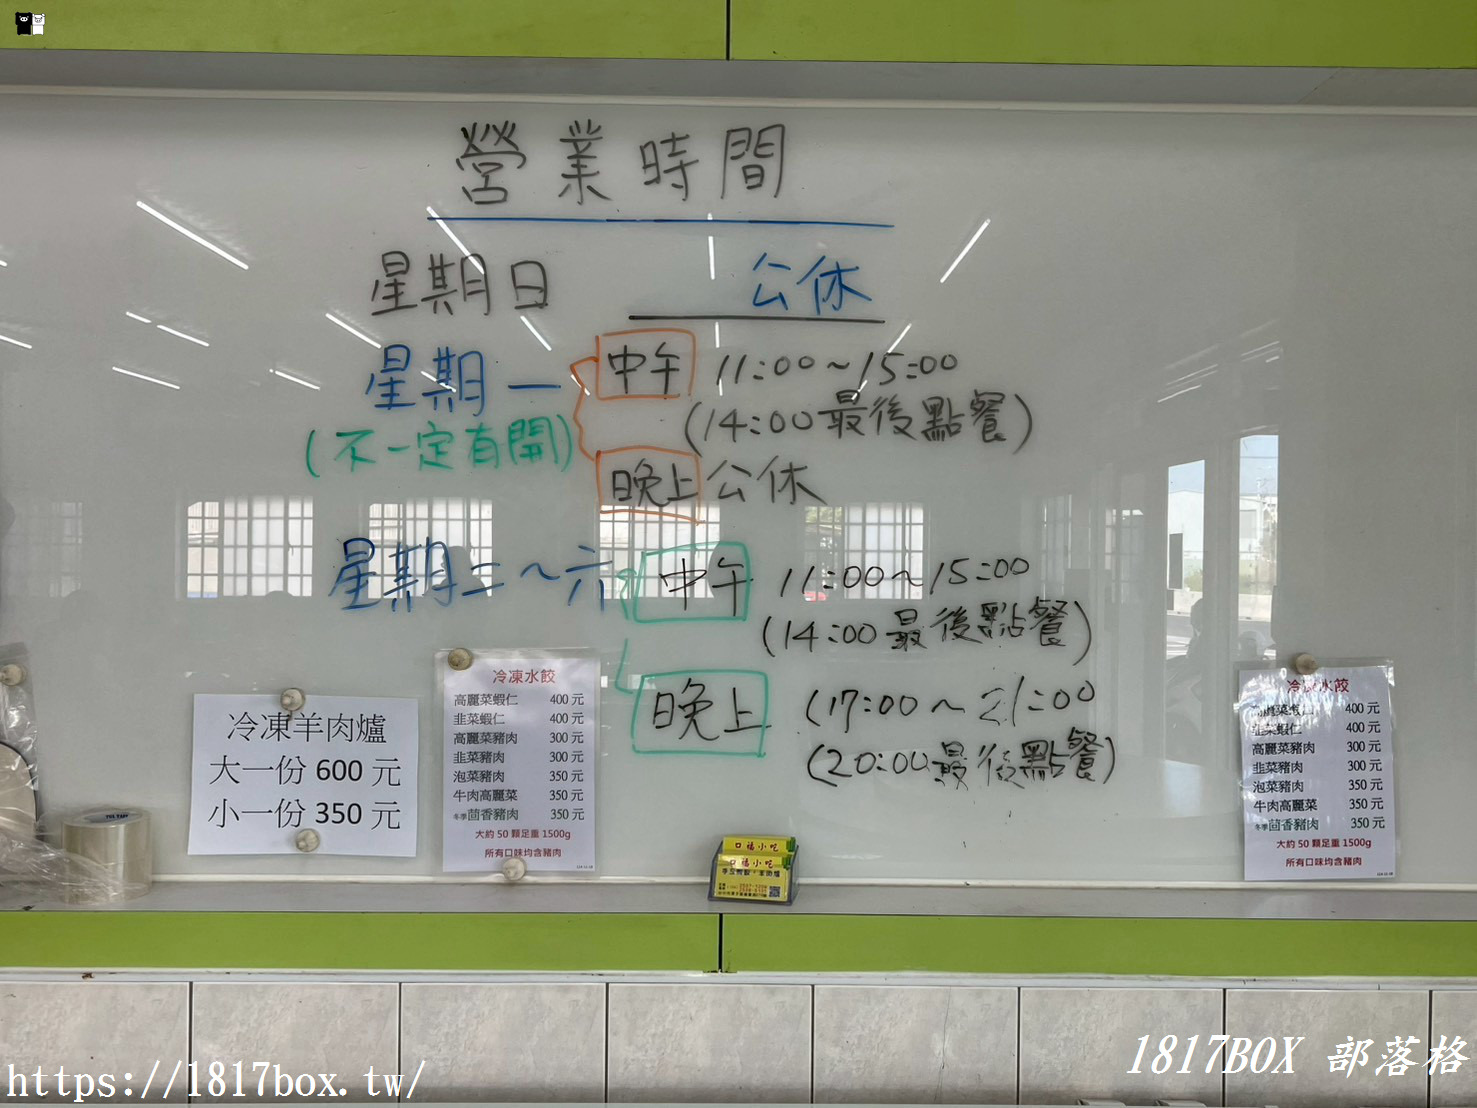 營業時間
星期日 公休
星期一 中午 11:00~15:00
(不一定有開) (14:00最後點餐)
晚上公休
星期二~六 中午 11:00~15:00
(14:00最後點餐)
晚上 (17:00~21:00
(20:00最後點餐)
冷凍羊肉爐
大一份 600 元
小一份 350 元
冷凍水餃
高麗菜蝦仁 400 元
韭菜蝦仁 400 元
高麗菜豬肉 300 元
韭菜豬肉 300 元
泡菜豬肉 350 元
牛肉高麗菜 350 元
冬季茴香豬肉 350 元
大約 50 顆足重 1500g
所有口味均含豬肉
口福小吃
口福小吃
冷凍水餃
高麗菜蝦仁 400 元
韭菜蝦仁 400 元
高麗菜豬肉 300 元
韭菜豬肉 300 元
泡菜豬肉 350 元
牛肉高麗菜 350 元
冬季茴香豬肉 350 元
大約 50 顆足重 1500g
所有口味均含豬肉
https://1817box.tw/
1817BOX 部落格